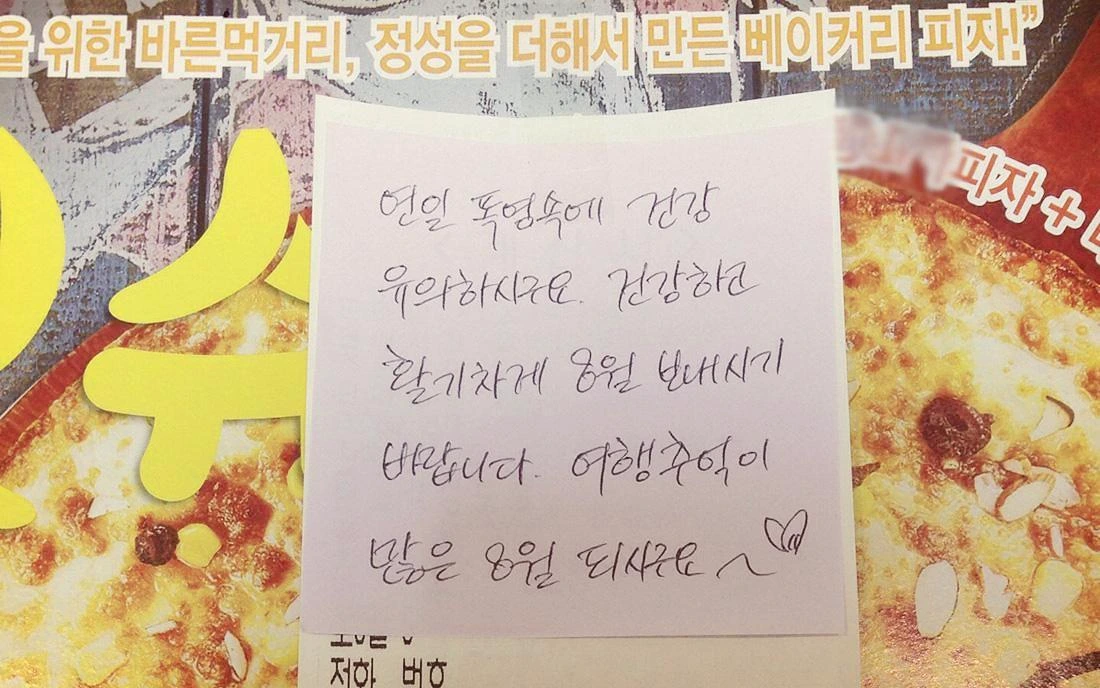 을 위한 바른먹거리, 정성을 더해서 만든 베이커리 피자!"
피자 +
연일 폭염속에 건강
유의하시구요. 건강하고
활기차게 8월 보내시기
바랍니다. 여행추억이
많은 8월 되시구요~